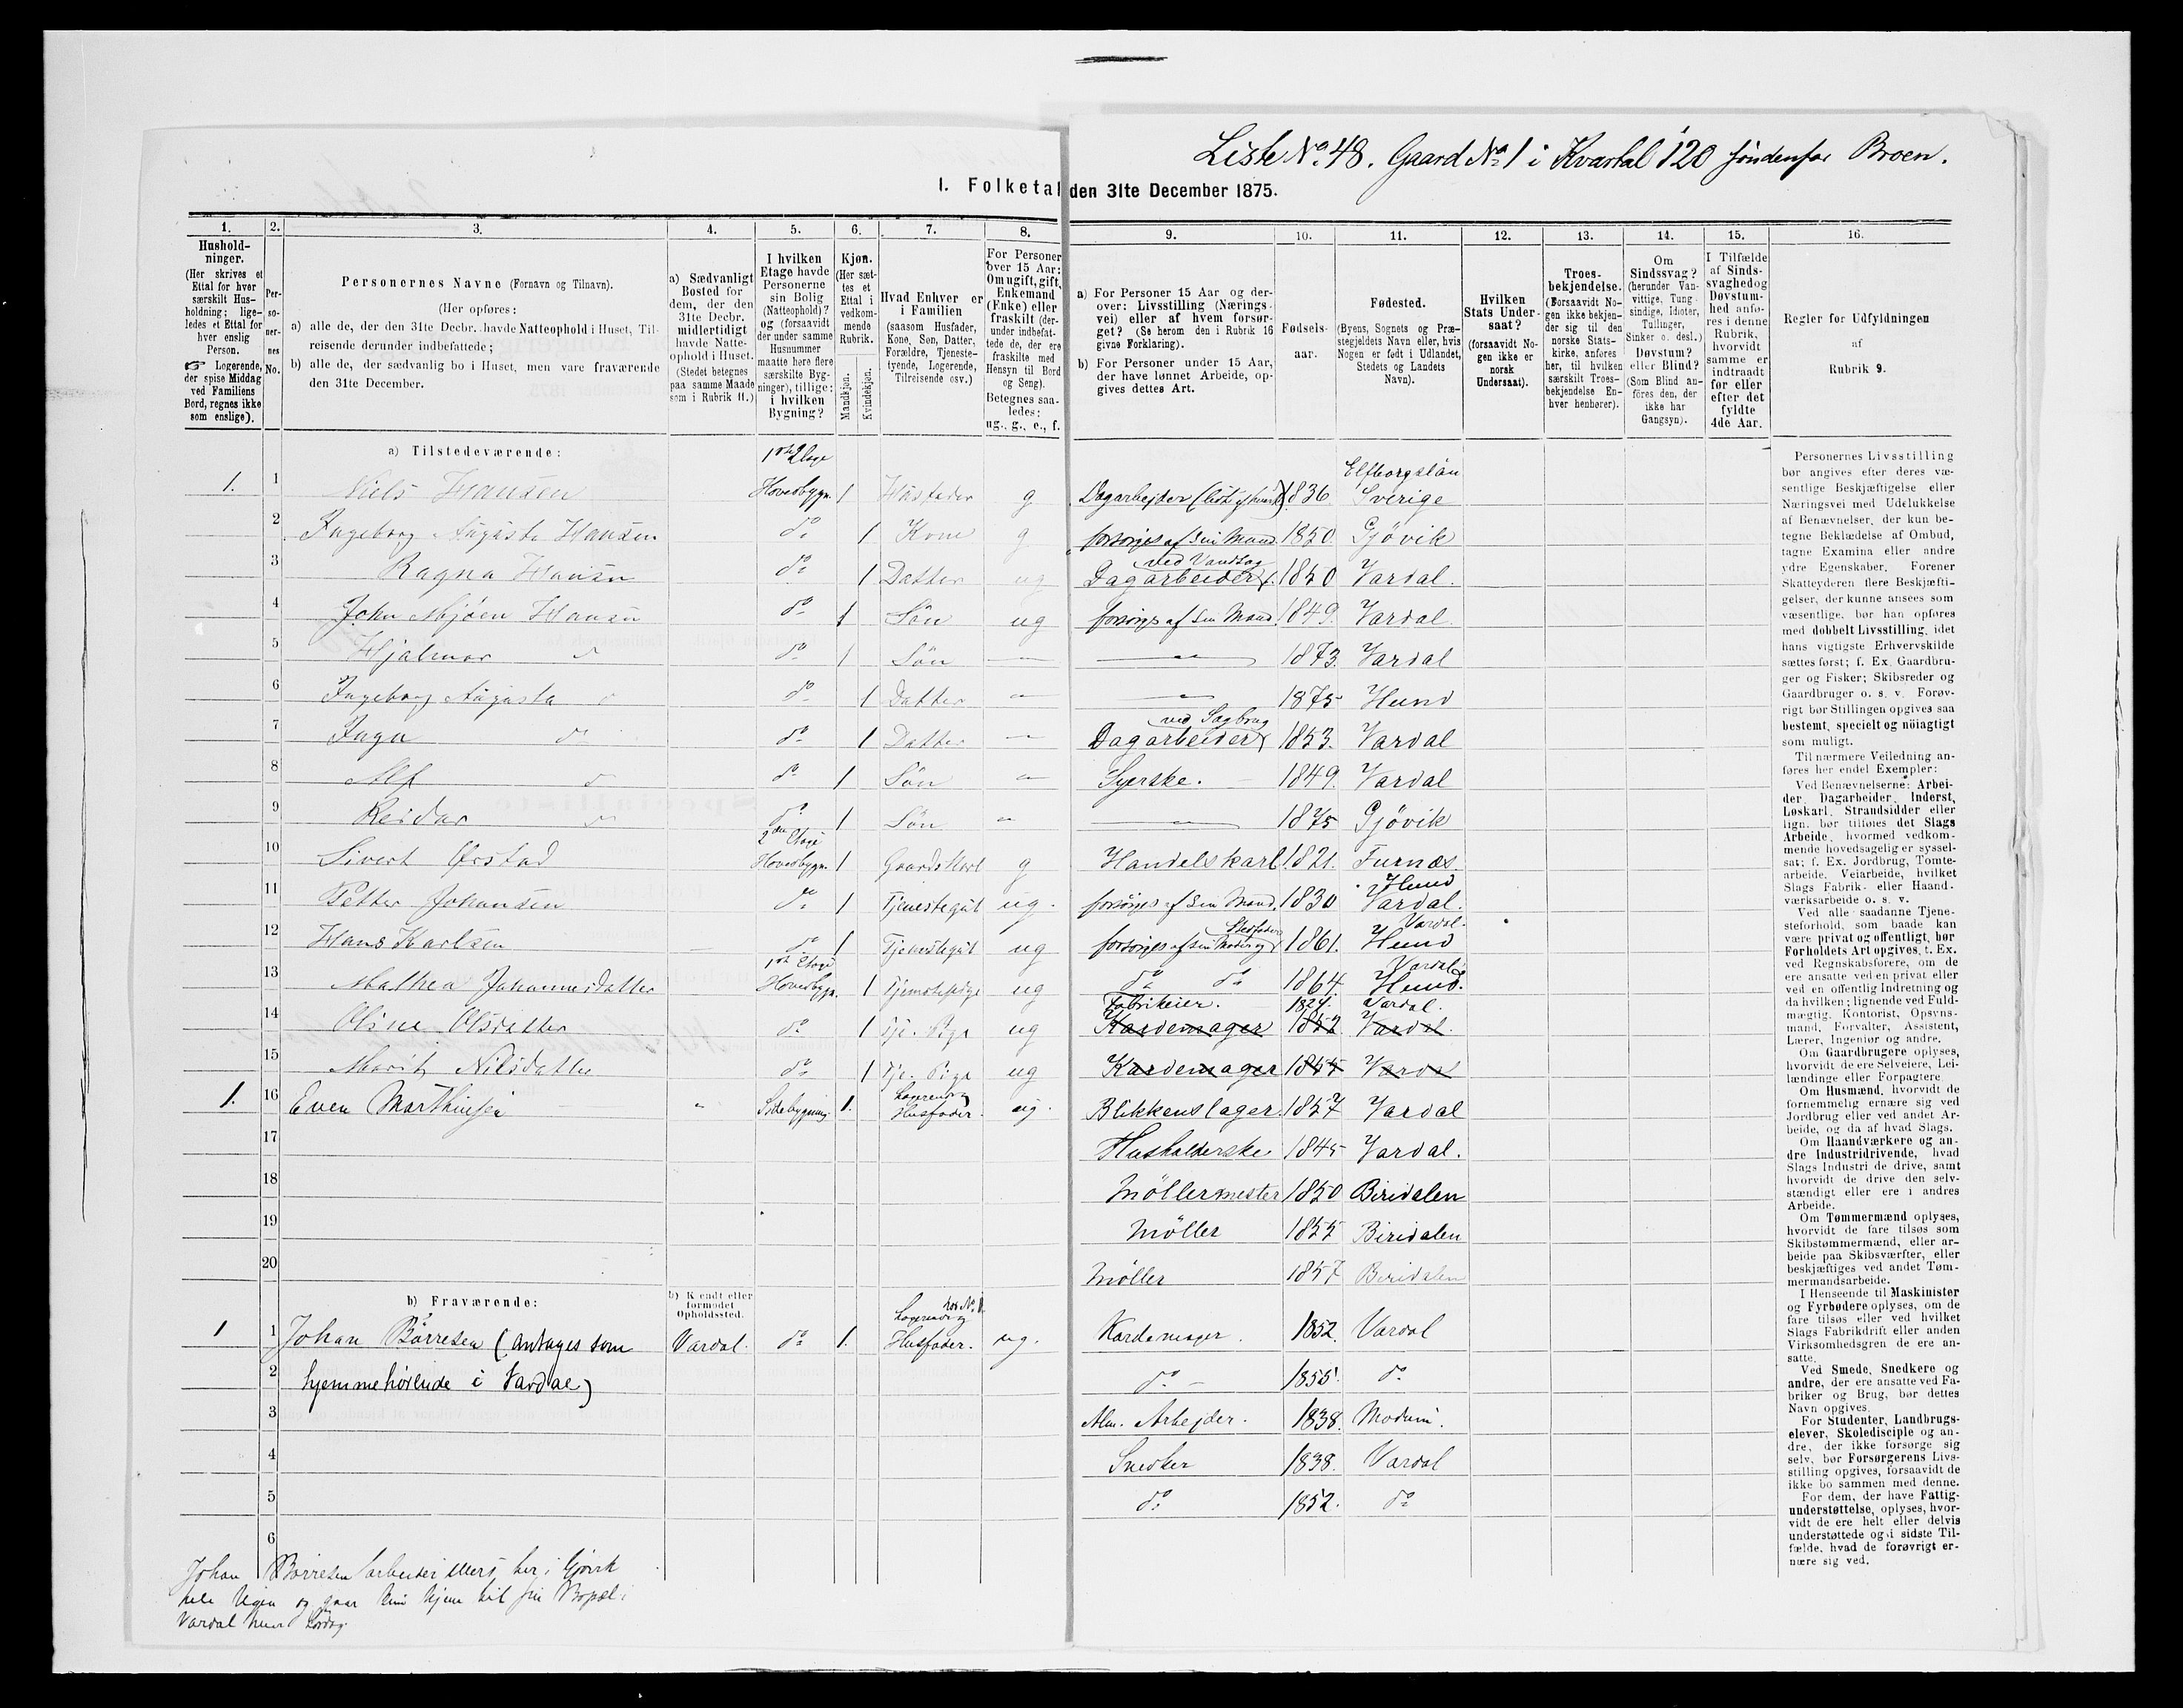 Liste No. 48. Gaard No. 1 i Kvartal 120 söndenfor Broen.
1. Folketal den 31te December 1875.
1. 2. 3. 4. 5. 6. 7. 8. 9. 10. 11. 12. 13. 14. 15. 16.
Hushold-
ninger.
(Her skrives et
Ettal for hver
særskilt Hus-
holdning; lige-
ledes et Ettal for
hver enslig
Person.
☞ Logerende,
der spise Middag
ved Familiens
Bord, regnes ikke
som enslige).
Per-
so-
ner-
nes
No.
Personernes Navne (Fornavn og Tilnavn).
(Her opføres:
a) alle de, der den 31te Decbr. havde Natteophold i Huset, Til-
reisende derunder indbefattede;
b) alle de, der sædvanlig bo i Huset, men vare fraværende
den 31te December.
a) Sædvanligt
Bosted for
dem, der den
31te Decbr.
midlertidigt
havde Natte-
ophold i Huset.
(Stedet betegnes
paa samme Maade
som i Rubrik 11.)
I hvilken
Etage havde
Personerne
sin Bolig
(Natteophold)?
og (forsaavidt
der under samme
Husnummer
maatte høre flere
særskilte Byg-
ninger), tillige:
i hvilken
Bygning?
Kjøn.
(Her sæt-
tes et
Ettal i
vedkom-
mende
Rubrik.
Mandkjøn.
Kvindekjøn.
Hvad Enhver er
i Familien
(saasom Husfader,
Kone, Søn, Datter,
Forældre, Tjeneste-
tyende, Logerende,
Tilreisende osv.)
For Personer
over 15 Aar:
Om ugift, gift,
Enkemand
(Enke) eller
fraskilt (der-
under indbefat-
tede de, der ere
fraskilte med
Hensyn til Bord
og Seng).
Betegnes saa-
ledes:
ug., g., e., f.
a) For Personer 15 Aar og der-
over: Livsstilling (Nærings-
vei) eller af hvem forsør-
get? (Se herom den i Rubrik 16
givne Forklaring).
b) For Personer under 15 Aar,
der have lønnet Arbeide, op-
gives dettes Art.
Fødsels-
aar.
Fødested.
(Byens, Sognets og Præ-
stegjeldets Navn eller, hvis
Nogen er født i Udlandet,
Stedets og Landets
Navn).
Hvilken
Stats Under-
saat?
(forsaavidt No-
gen ikke er
norsk
Undersaat).
Troes-
bekjendelse.
(Forsaavidt No-
gen ikke bekjen-
der sig til den
norske Stats-
kirke, anføres
her, til hvilken
særskilt Troes-
bekjendelse En-
hver henhører).
Om
Sindssvag?
(herunder Van-
vittige, Tung-
sindige, Idioter,
Tullinger,
Sinker o. desl.)
Døvstum?
eller Blind?
(Som Blind an-
föres den, der
ikke har
Gangsyn).
I Tilfælde
af Sinds-
svaghed og
Døvstum-
hed anfø-
res i denne
Rubrik,
hvorvidt
samme er
indtraadt
før eller
efter det
fyldte
4de Aar.
Regler for Udfyldningen
af
Rubrik 9.
a) Tilstedeværende:
1. 1 Niels Hansen Hovedbygn. 1 Husfader g Dagarbejder 1836 Elfborgslän Sverige
2 Ingeborg Augusta Hansen do 1 Kone g forsörges af sin Mand. 1850 Gjövik
3 Ragna Hansen do 1 Datter ug Dagarbeider ved Vandsag 1850 Vardal.
4 John Mjøen Hansen do 1 Sön ug forsörges af sin Mand. 1849. Vardal
5 Hjalmar do do 1 Sön — — 1873. Vardal
6 Ingeborg Augusta do do 1 Datter — — 1875 Hund
7 Inga do do 1 Datter — Dagarbeider ved Sagbrug 1853. Vardal
8 Alf do do 1 Sön — Syerske. 1849. Vardal
9 Reidar do do 1 Sön — — 1875 Gjövik
10 Sivert 2den Etage Hovedbygn. 1 g Handelskarl 1821. Furnæs
11 Petter Johansen do 1 Tjenestegut ug. forsörges af sin Mand. 1830 Hund Vardal.
12 Hans Karlsen do 1 Tjenestegut ug forsörges af sin Moder og Stedfader 1861. Vardal. Hund
13 Mathea Johannesdatter 1ste Etage Hovedbygn. 1 Tjenestepige ug do do 1864 Vardal Hund.
14 Oline Olsdatter do 1 Tje. Pige ug Fabrikeier. 1824. Vardal. Kardemager 1852 Vardal.
15 Marit Nilsdatter do 1 Tje. Pige ug Kardemager 1855 Vardal
1. 16 Even Marthinsen Sidebygning 1. Logerende Husfader. ug. Blikkenslager 1857 Vardal
17 Husholderske 1845 Vardal.
18 Möllermester 1850 Biridalen
19 Möller 1855 Biridalen
20 Möller 1857 Biridalen
b) Fraværende:
b) Kjendt eller
formodet
Opholdssted.
1 1 Johan Börresen (antages som Vardal. do 1. Logerende hos No. 1. Husfader. ug. Kardemager. 1852. Vardal
2 hjemmehörende i Vardal) do 1855. do
3 Alm. Arbejder. 1838. Modum.
4 Snedker 1838. Vardal
5 do 1852. do
6
Johan Börresen arbeider ellers her i Gjövik
hele Ugen og gaar kun hjem til sin Bopæl i
Vardal hver Lördag.
Personernes Livsstilling
bør angives efter deres væ-
sentlige Beskjæftigelse eller
Næringsvei med Udelukkelse
af Benævnelser, der kun be-
tegne Beklædelse af Ombud,
tagne Examina eller andre
ydre Egenskaber. Forener
Skatteyderen flere Beskjæfti-
gelser, der kunne ansees som
væsentlige, bør han opføres
med dobbelt Livsstilling, idet
hans vigtigste Erhvervskilde
sættes først; f. Ex. Gaardbru-
ger og Fisker; Skibsreder og
Gaardbruger o. s. v. Forøv-
rigt bør Stillingen opgives saa
bestemt, specielt og nöiagtigt
som muligt.
Til nærmere Veiledning an-
føres her endel Exempler:
Ved Benævnelserne: Arbei-
der, Dagarbeider, Inderst,
Løskarl, Strandsidder eller
lign. bør tilføies det Slags
Arbeide, hvormed vedkom-
mende hovedsagelig er syssel-
sat; f. Ex. Jordbrug, Tomte-
arbeide, Veiarbeide, hvilket
Slags Fabrik- eller Haand-
værksarbeide o. s. v.
Ved alle saadanne Tjene-
steforhold, som baade kan
være privat og offentligt, bør
Forholdets Art opgives, t. Ex.
ved Regnskabsførere, om de
ere ansatte ved en privat eller
ved en offentlig Indretning og
da hvilken; lignende ved Fuld-
mægtig, Kontorist, Opsyns-
mand, Forvalter, Assistent,
Lærer, Ingeniør og andre.
Om Gaardbrugere oplyses,
hvorvidt de ere Selveiere, Lei-
lændinge eller Forpagtere.
Om Husmænd, hvorvidt de
fornemmelig ernære sig ved
Jordbrug eller ved andet Ar-
beide, og da af hvad Slags.
Om Haandværkere og an-
dre Industridrivende, hvad
Slags Industri de drive, samt
hvorvidt de drive den selv-
stændigt eller ere i andres
Arbeide.
Om Tømmermænd oplyses,
hvorvidt de fare tilsøs som
Skibstømmermænd, eller ar-
beide paa Skibsværfter, eller
beskjæftiges ved andet Tøm-
mermandsarbeide.
I Henseende til Maskinister
og Fyrbødere oplyses, om de
fare tilsøs eller ved hvilket
Slags Fabrikdrift eller anden
Virksomhedsgren de ere an-
satte.
Ved Smede, Snedkere og
andre, der ere ansatte ved Fa-
briker og Brug, bør dettes
Navn opgives.
For Studenter, Landbrugs-
elever, Skoledisciple og an-
dre, der ikke forsørge sig
selv, bør Forsørgerens Livs-
stilling opgives, forsaavidt de
ikke bo sammen med denne.
For dem, der have Fattig-
understøttelse, oplyses, hvor-
vidt de ere helt eller delvis
understøttede og i sidste Til-
fælde, hvad de forøvrigt er-
nære sig ved.